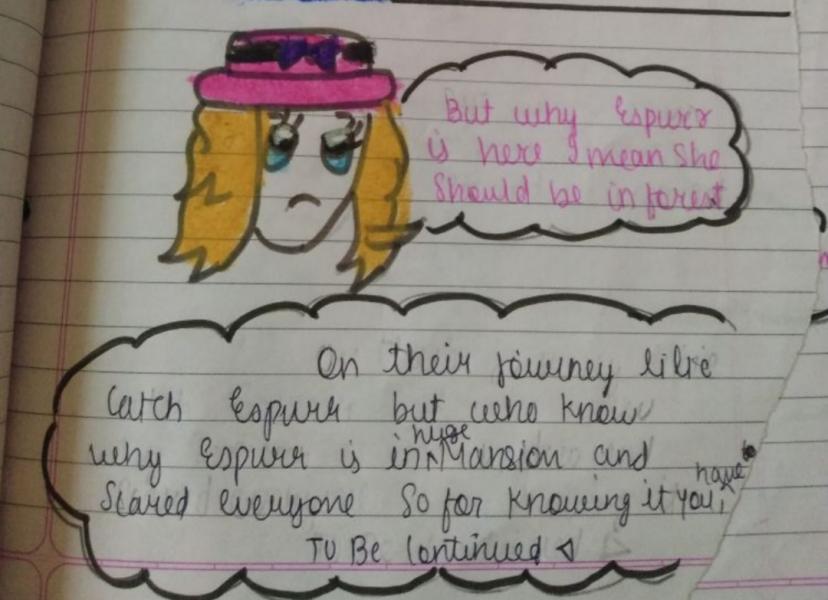 But why Espurr
is here I mean she
should be in forest
On their journey lillie
catch Espurr but who know
why Espurr is in huge Mansion and
scared everyone So for knowing it you have to
To Be Continued